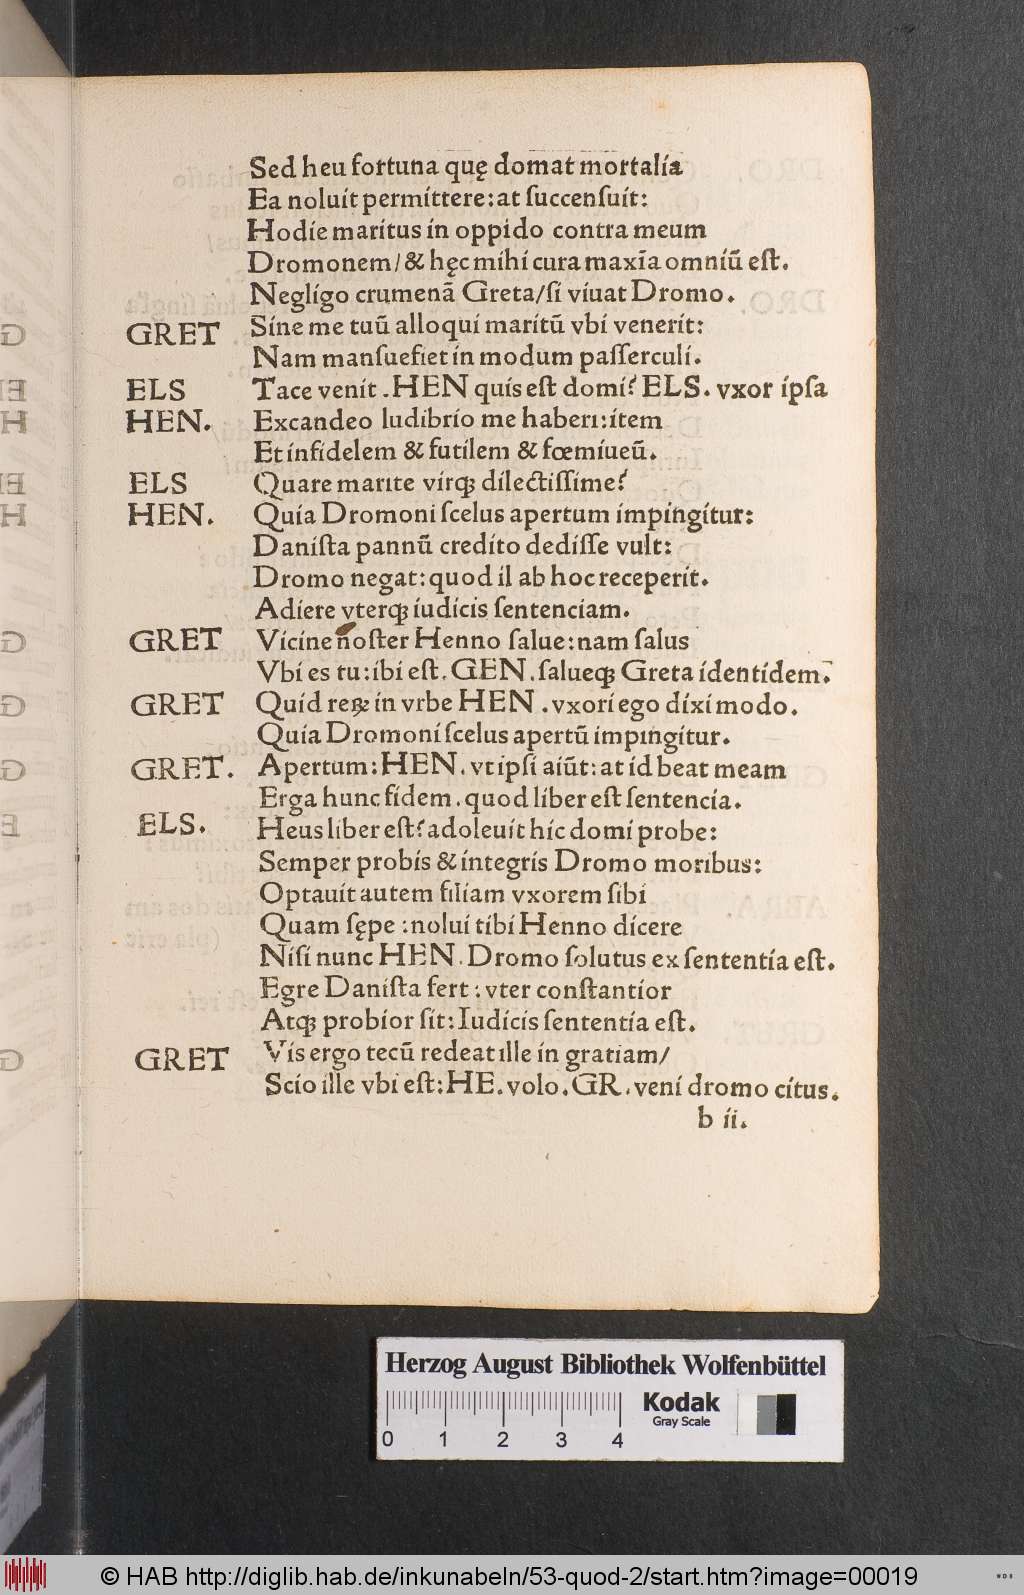 Sed heu fortuna quę domat mortalia
Ea noluit permittere: at ſuccenſuit:
Hodie maritus in oppido contra meum
Dromonem/ & hęc mihi cura maxīa omniū eſt.
Negligo crumenā Greta/ ſi viuat Dromo.
GRET Sine me tuū alloqui maritū vbi venerit:
Nam manſuefiet in modum paſſerculi.
ELS Tace venit . HEN quis eſt domi? ELS. vxor ipſa
HEN. Excandeo ludibrio me haberi: item
Et infidelem & futilem & fœmiueū.
ELS Quare marite virqꝫ dilectiſſime?
HEN. Quia Dromoni ſcelus apertum impingitur:
Daniſta pannū credito dediſſe vult:
Dromo negat: quod il ab hoc receperit.
Adiere vterqꝫ iudicis ſentenciam.
GRET Vicine noſter Henno ſalue: nam ſalus
Vbi es tu: ibi eſt. GEN. ſalueqꝫ Greta identidem.
GRET Quid reꝝ in vrbe HEN . vxori ego dixi modo.
Quia Dromoni ſcelus apertū impingitur.
GRET. Apertum: HEN. vt ipſi aiūt: at id beat meam
Erga hunc fidem . quod liber eſt ſentencia.
ELS. Heus liber eſt? adoleuit hic domi probe:
Semper probis & integris Dromo moribus:
Optauit autem filiam vxorem ſibi
Quam ſępe : nolui tibi Henno dicere
Niſi nunc HEN. Dromo ſolutus ex ſententia eſt.
Egre Daniſta fert : vter conſtantior
Atqꝫ probior ſit: Iudicis ſententia eſt.
GRET Vis ergo tecū redeat ille in gratiam/
Scio ille vbi eſt: HE. volo. GR. veni dromo citus.
b ii.
Herzog August Bibliothek Wolfenbüttel
Kodak
Gray Scale
0 1 2 3 4
© HAB http://diglib.hab.de/inkunabeln/53-quod-2/start.htm?image=00019